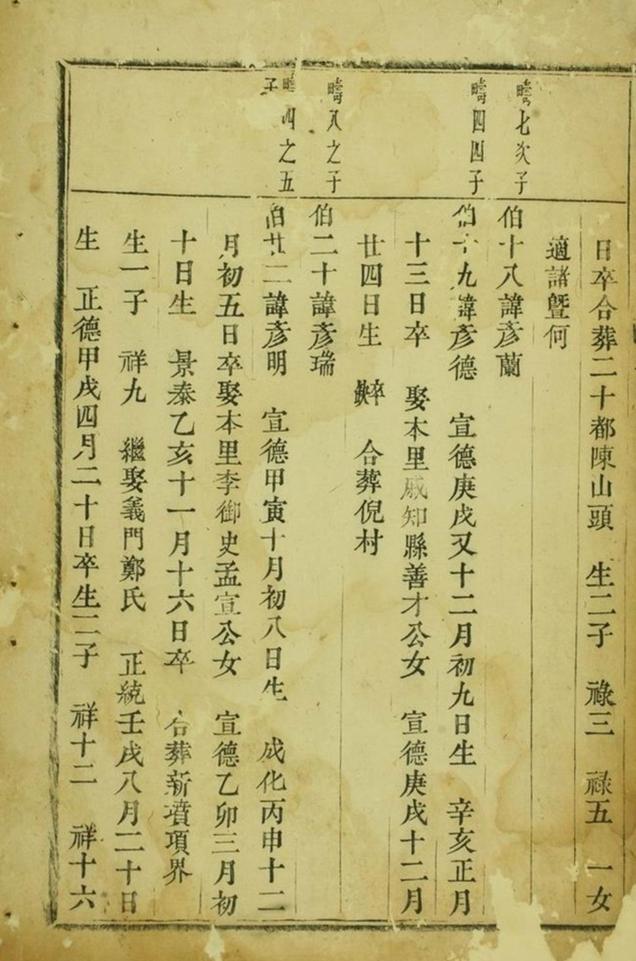 日卒合葬二十都陳山頭 生二子 祿三 祿五 一女
適諸暨何
疇七次子
伯十八諱彥蘭
疇四四子
伯十九諱彥德 宣德庚戌又十二月初九日生 辛亥正月
十三日卒 娶本里戚知縣善才公女 宣德庚戌十二月
廿四日生 卒 合葬倪村
疇八之子
伯二十諱彥瑞
疇四之五子
伯廿二諱彥明 宣德甲寅十月初八日生 成化丙申十二
月初五日卒娶本里李御史孟宣公女 宣德乙卯三月初
十日生 景泰乙亥十一月十六日卒 合葬新墳項界
生一子 祥九 繼娶義門鄭氏 正統壬戌八月二十日
生 正德甲戌四月二十日卒生二子 祥十二 祥十六